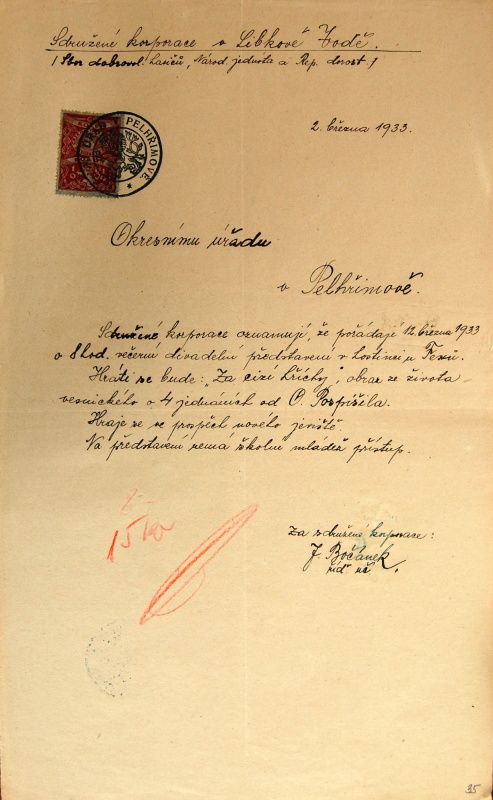 Sdružené korporace v Libkově Vodě.
/ Sbor dobrovol. hasičů, Národ. jednota a Rep. dorost /
2. března 1933.
PELHŘIMOVĚ
Okresnímu úřadu
v Pelhřimově.
Sdružené korporace oznamují, že pořádají 12. března 1933
o 8 hod. večerní divadelní představení v hostinci u
Hráti se bude: „Za cizí hříchy", obraz ze života
vesnického o 4 jednáních od O. Pospíšila.
Hraje se ve prospěch nového jeviště.
Na představení nemá školní mládež přístup.
15 Kč
Za sdružené korporace:
J. Bočánek
říd. uč.
35